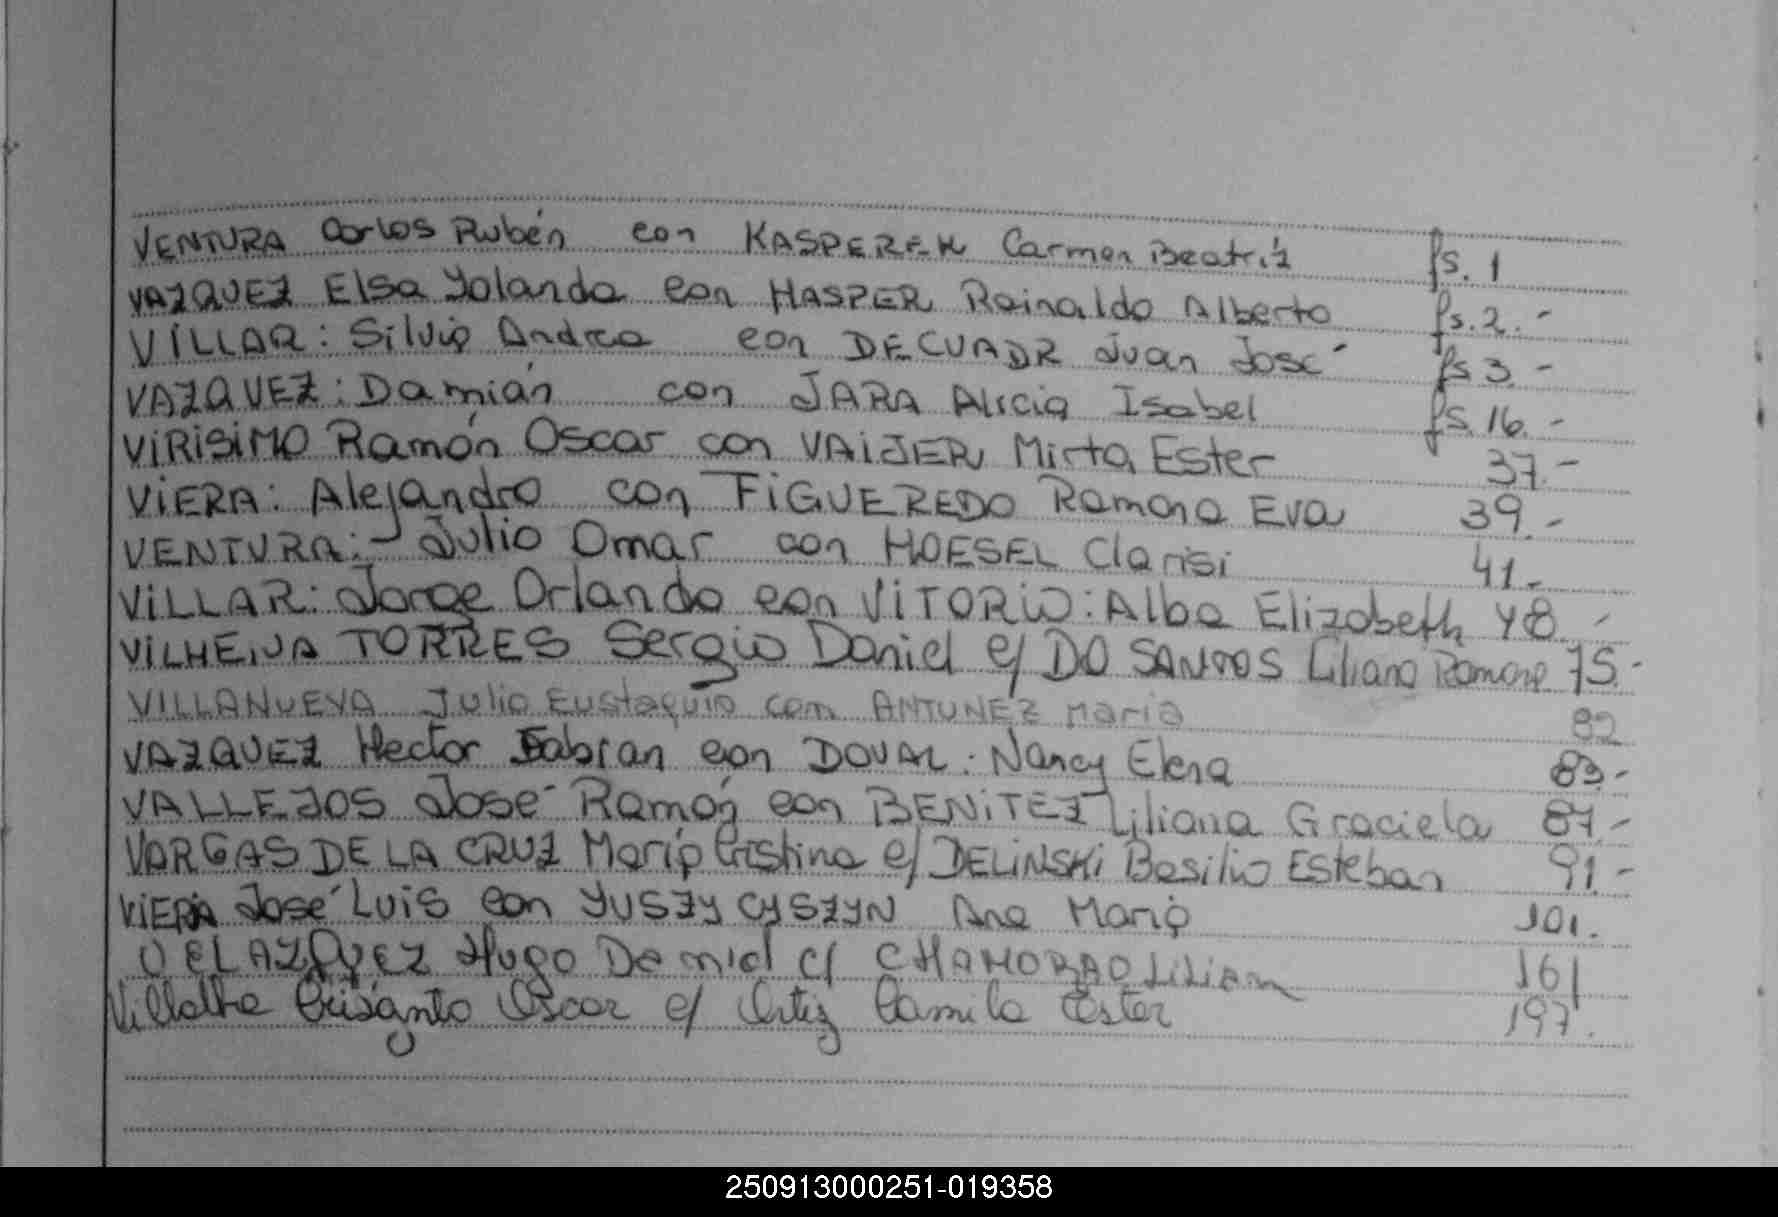 VENTURA Carlos Rubén con KASPEREK Carmen Beatriz fs. 1
VAZQUEZ Elsa Yolanda con HASPER Reinaldo Alberto fs. 2.-
VILLAR: Silvia Andrea con DECUADR Juan José fs 3 -
VAZQUEZ: Damián con JARA Alicia Isabel fs. 16.-
VIRISIMO Ramón Oscar con VAIJER Mirta Ester 37.-
VIERA: Alejandro con FIGUEREDO Ramona Eva 39.-
VENTURA: Julio Omar con HOESEL Clarisi 41.-
VILLAR: Jorge Orlando con VITORIO: Alba Elizabeth 48 -
VILHENA TORRES Sergio Daniel c/ DO SANTOS Liliana Ramona 75.-
VILLANUEVA Julio Eustaquio con ANTUNEZ Maria 82
VAZQUEZ Hector Fabian con DOVAL: Nancy Elena 83.-
VALLEJOS José Ramón con BENITEZ Liliana Graciela 87.-
VARGAS DE LA CRUZ María Cristina c/ DELINSKI Basilio Esteban 91.-
VIERA José Luis con YUSZYCYSZYN Ana María 101.
VELAZQUEZ Hugo Daniel c/ CHAMORRO Lilian 161
Villalba Crisanto Oscar c/ Ortiz Camila Ester 197.
250913000251-019358